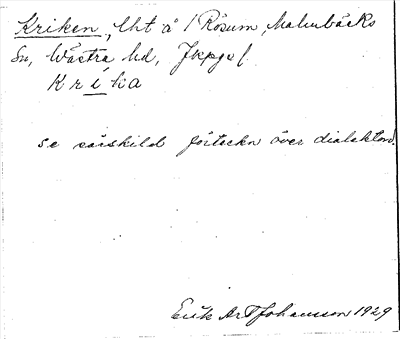 Kriken, lht å 1 Rösum, Malmbäcks
Sn, Wästra hd, Jkpgs l.
K r i k a
se särskild förteckn över dialektord.
Erik Art Johansson 1929